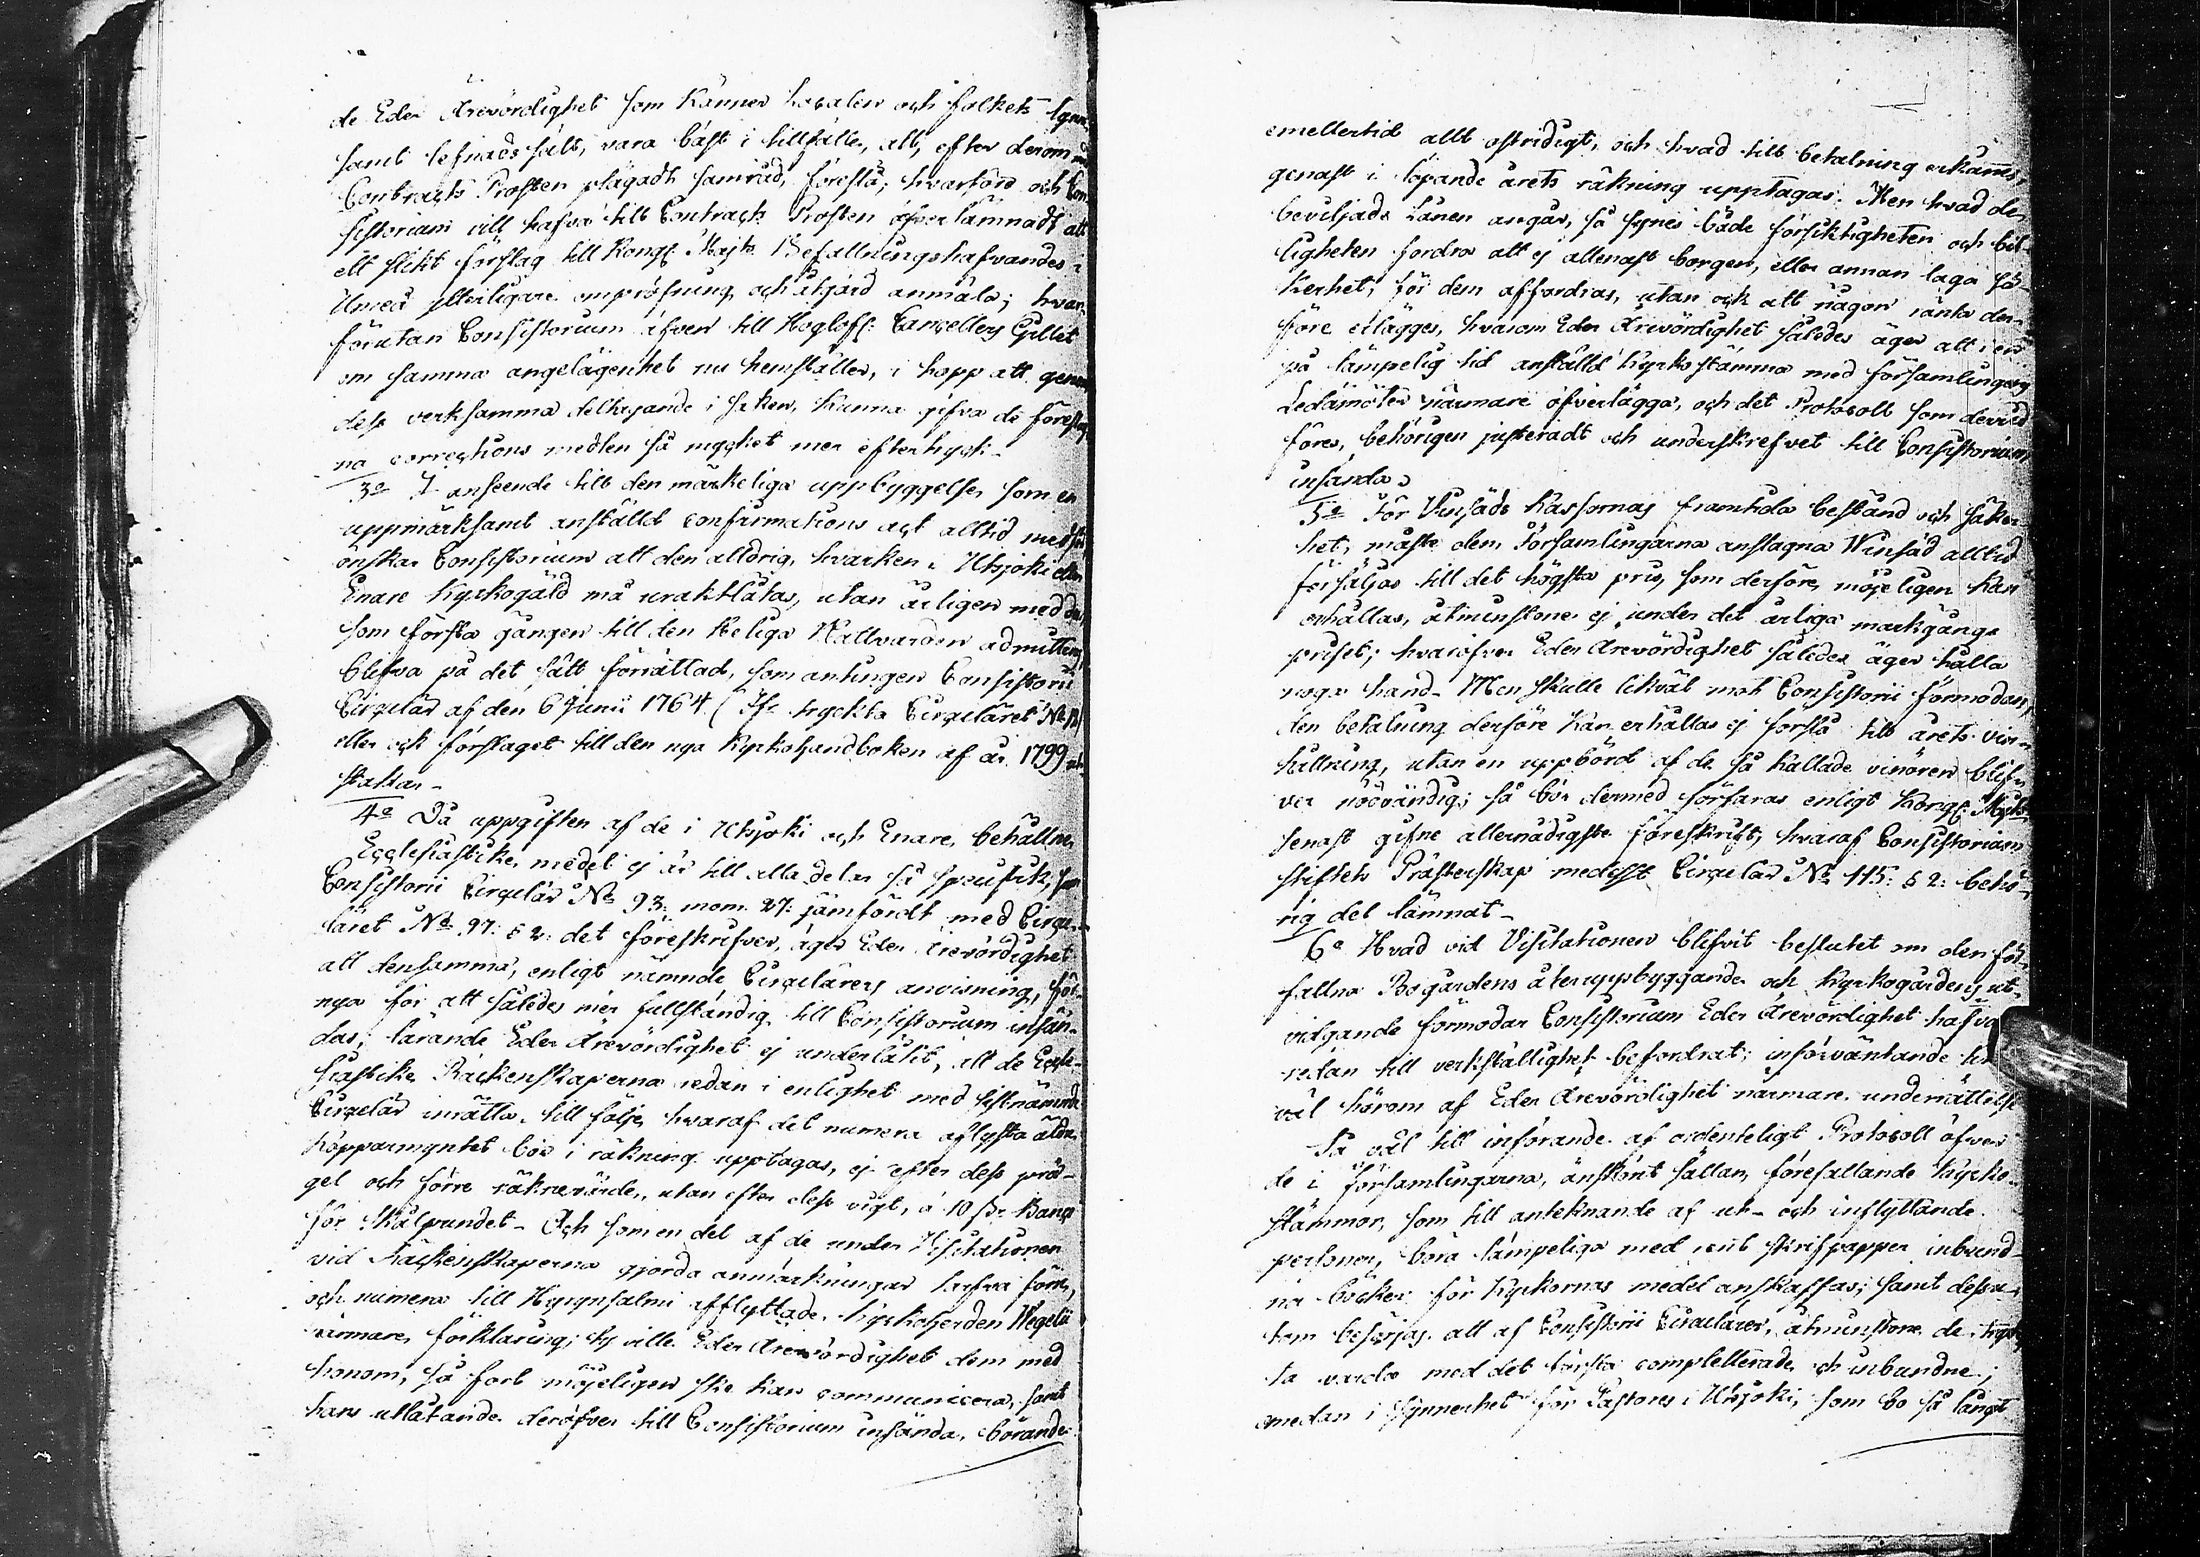 de Eder Ärevördighet som känner localen och folkets lynn
samt lefnads sätt, vara bäst i tillfälle, att, efter derom
Contracts Prosten plägadt samråd, föreslå; hvarföre och Con-
sistorium vill hafva till Contracts Prosten öfverlämnadt att
ett slikt förslag till Kongl. Majts Befallningshafvandes i
Umeå ytterligare ompröfning och åtgärd anmäla; hvar-
förutan Consistorium äfven till Höglofl: Cancellers Gillet
om samma angelägenhet nu hemställer, i hopp att genom
dess verksamma deltagande i saken, kunna gifva de föreslag
na corrections medlen så mycket mer eftertryck.
3o I anseende till den märkeliga uppbyggelse som en
uppmärksamt anställd confirmations act alltid medför
önskar Consistorium att den aldrig, hvarken i Utsjoki eller
Enare Kyrkogäld må uraktlåtas, utan årligen med de,
som första gången till den Heliga Nattvarden admitteras,
blifva på det sätt förrättad, som antingen Consistorii
Circulär af den 6 Junii 1764 (Jfr tryckta Circuläret No
eller ock förslaget till den nya Kyrkohandboken af år 1799
stakar.
4o Då uppgiften af de i Utsjoki och Enare behållne
Ecclesiastike medel ej är till alla delar så specifik, som
Consistorii Circulär No 93. mom. 27: jämfördt med Circu-
läret No 97: § 2: det föreskrifver, äger Eder Ärevördighet
att densamma, enligt nämnde Circulärers anvisning, för-
nya för att således mer fullständig till Consistorium insän-
das; lärande Eder Ärevördighet ej underlåtit, att de Eccle-
siastike Räckenskaperna redan i enlighet med sistnämnde
Circulär inrätta. till följe hvaraf det numera aflysta äldre
kopparmyntet bör i räkning upptagas, ej efter dess präg-
gel och förre räknevärde, utan efter dess vigt, á 10 sk. Banco
för skålpundet. Och som en del af de under Visitationen
vid Räckenskaperna gjorda anmärkningar tarfva förre,
och numera till Hyrynsalmi afflyttade Kyrkoherden Wegelii
närmare förklaring; ty ville Eder Ärevördighet dem med
honom, så fort möjeligen ske kan communicera, samt
hans utlåtande deröfver till Consistorium insända, börande
emellertid allt ostridigt, och hvad till betalning erkännes,
genast i löpande årets räkning upptagas. Men hvad de
beviljade Lånen angår, så synes både försiktigheten och bil-
ligheten fordra att ej allenast borgen, eller annan laga sä-
kerhet, för dem affordras, utan ock att någon ränta der-
före erlägges, hvarom Eder Ärevördighet således äger att i en
på lämpelig tid anställd Kyrkostämma med församlingens
Ledamöter närmare öfverlägga, och det Protocoll som dervid
föres, behörigen justeradt och underskrefvet till Consistorium
insända.
5o För Vinsäds Kassornas framtida bestånd och säker-
het, måste den Församlingarna anslagna Winsäd alltid
försäljas till det högsta pris, som derföre möjeligen kan
erhållas, åtminstone ej under det årliga markgångs
priset; hvaröfver Eder Ärevördighet således äger hålla
noga hand. Men skulle likväl mot Consistorii förmodan,
den betalning derföre kan erhållas ej förslå till årets vin-
hållning, utan en uppbörd af de så kallade vinören blif-
ver nödvändig; så bör dermed förfaras enligt Kongl. Majts
senast gifne allernådigste föreskrift, hvaraf Consistorium
stiftets Prästerskap medelst Circulär No 115: § 2: behö-
rig del lämnat.
6o Hvad vid Visitationen blifvit beslutet om den för-
fallna Bogårdens återuppbyggande och Kyrkogårdens ut-
vidgande förmodar Consistorium Eder Ärevördighet hafva
redan till verkställighet befordrat; införväntande
väl härom af Eder Ärevördighet närmare underrättelse
Så väl till införande af ordenteligt Protocoll öfver
de i församlingarna, änskönt sällan, förefallande Kyrko-
stämmor, som till antecknande af ut- och inflyttande
personer, böra lämpeliga med rent skrifpapper inbund-
na böcker för Kyrkornas medel anskaffas; samt dessu-
tom besörjas att af Consistorii Circulärer, åtminstone de tryck
ta varda med det första completterade och inbundne;
emedan i synnerhet för Pastores i Utsjoki, som bo så långt